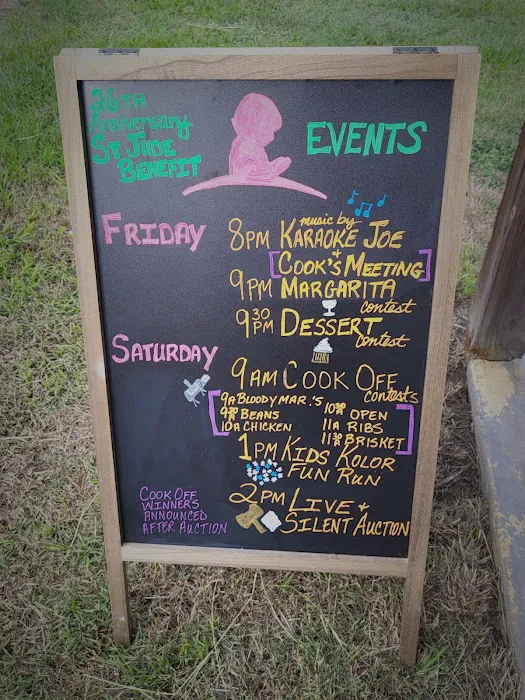 26TH
Anniversary
ST JUDE
BENEFIT
EVENTS
FRIDAY
music by
8PM KARAOKE JOE
&
[COOK'S MEETING]
9PM MARGARITA
contest
9 30 PM DESSERT
contest
SATURDAY
9AM COOK OFF
contests
9A BLOODY MAR.'S
9 30 A BEANS
10A CHICKEN
10 30 A OPEN
11A RIBS
11 30 A BRISKET
1PM KIDS KOLOR
FUN RUN
2PM LIVE &
SILENT AUCTION
COOK OFF
WINNERS
ANNOUNCED
AFTER AUCTION